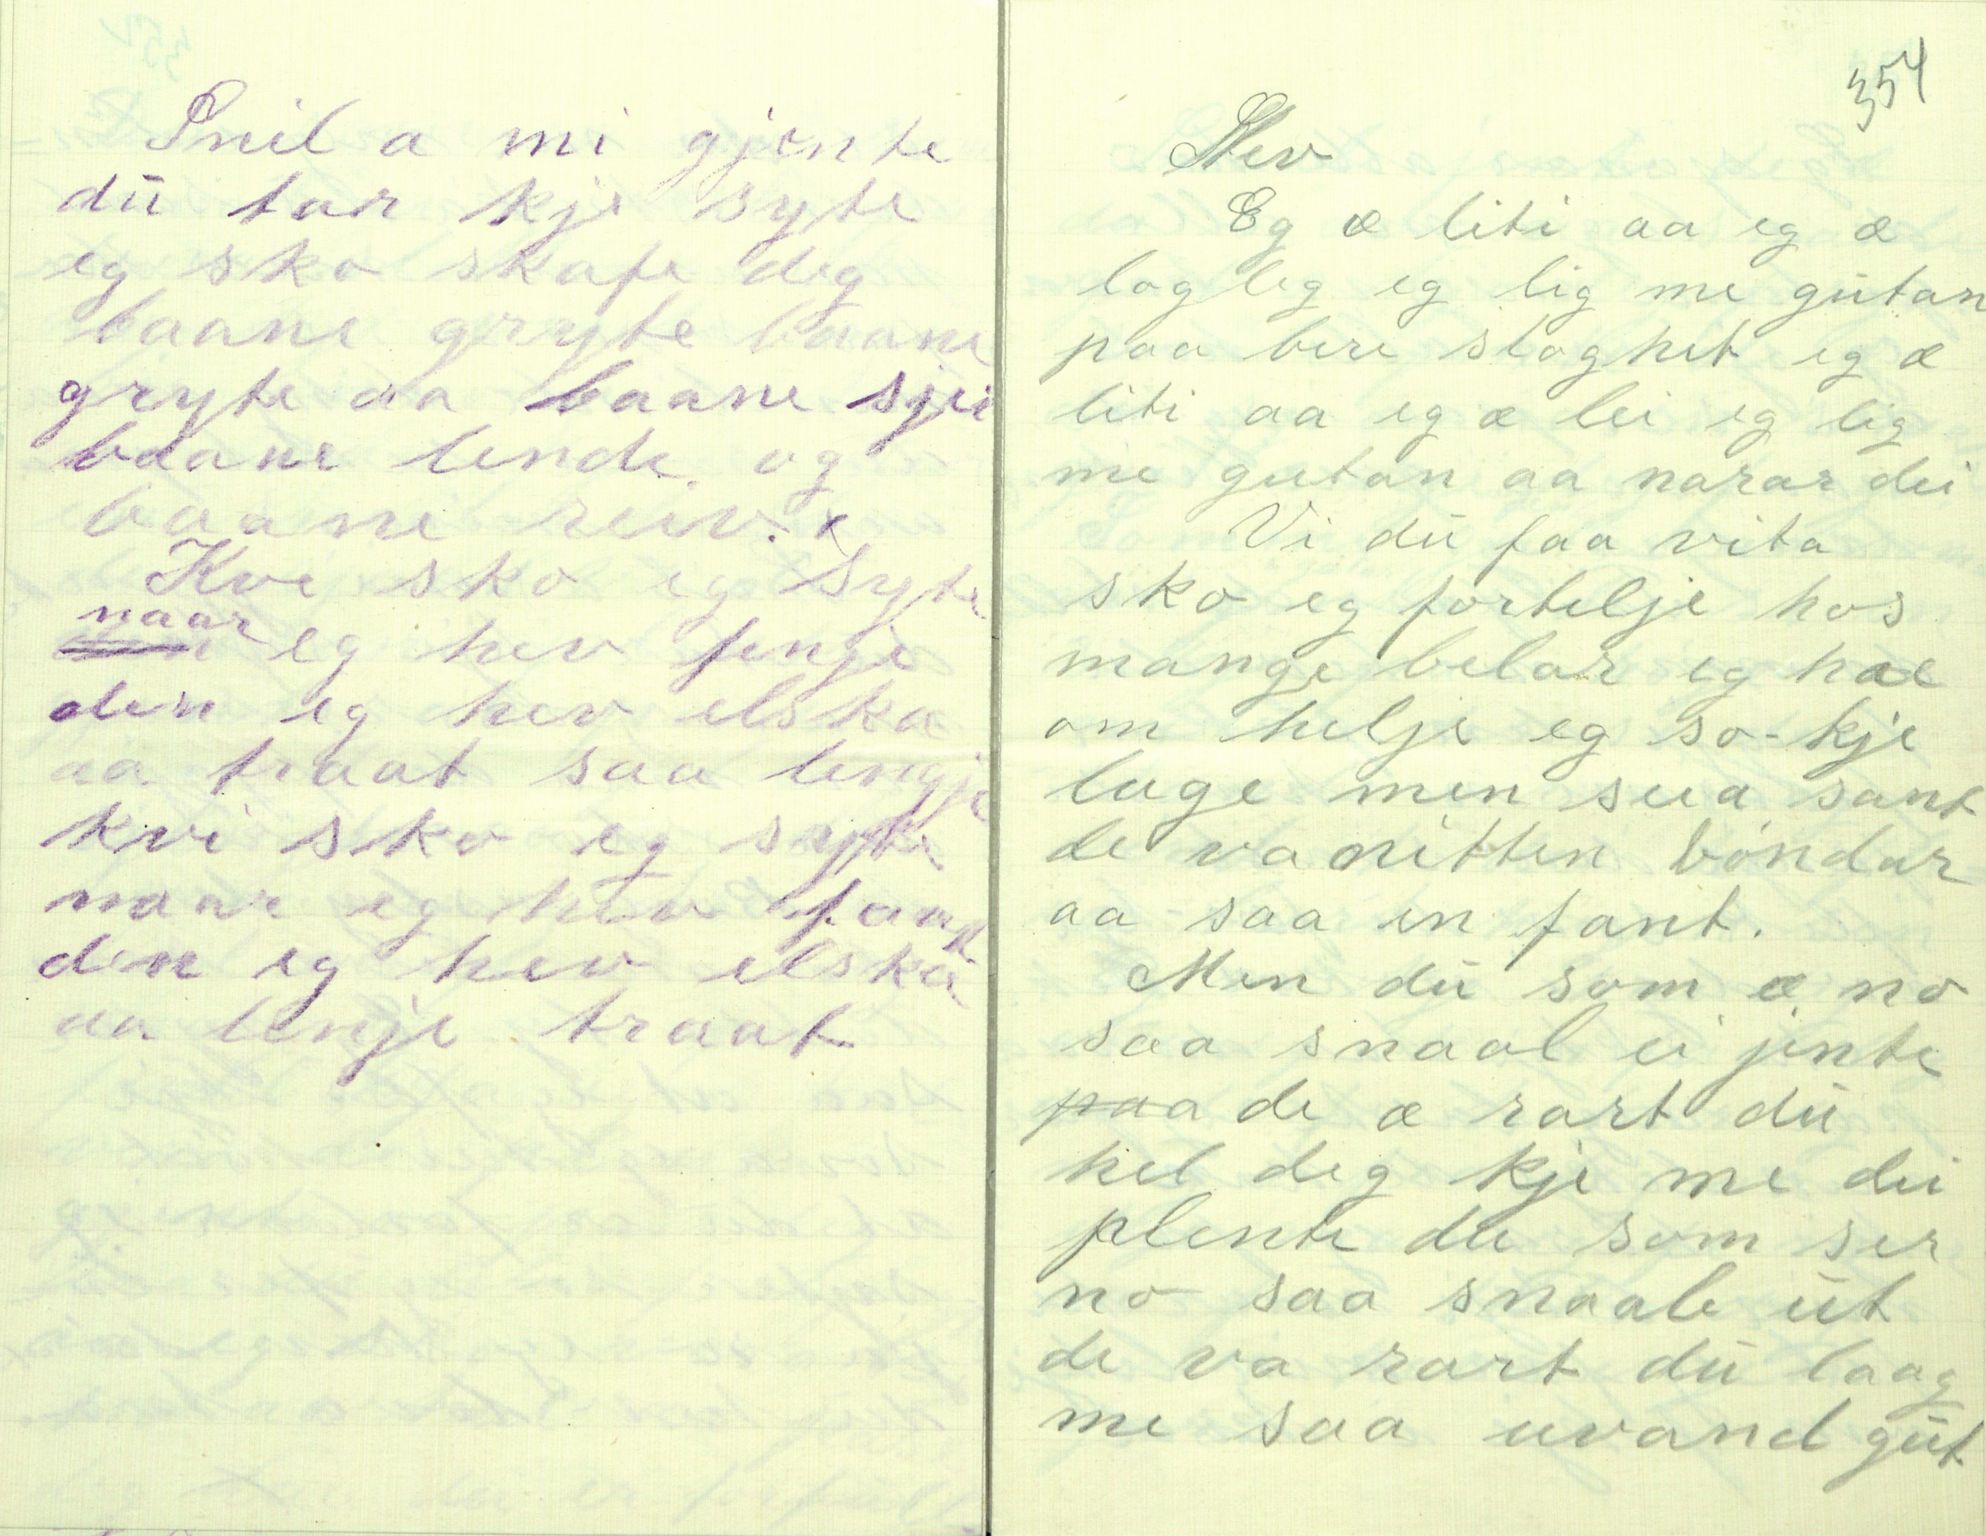 Snil a mi gjente
dū tar kje syte
eg sko skafe deg
baane gryte baane
gryte aa baane sjei
baane lende og
baane reiv. x
Kve sko eg syte
naar eg hev fengje
den eg hev elska
aa traat saa lengje
kvi sko eg syte
naar eg hev faat
den eg hev elska
aa lenje traat
354
Stev
Eg æ liti aa eg æ
lagleg eg lig me gūtan
paa bere slaghet eg æ
liti aa eg æ lei eg lig
me gutan aa narar dei
Vi dū faa vita
sko eg fortelje hos
mange belar eg hae
om helje eg so-kje
luge men sua sant
de va nitten bóndar
aa saa en fant.
Men dū som æ no
saa snaal ei jente
paa de æ rart dū
hel deg kje me dei
plente du som ser
no saa snaale ūt
de va rart dū laag
me saa uvand gūt